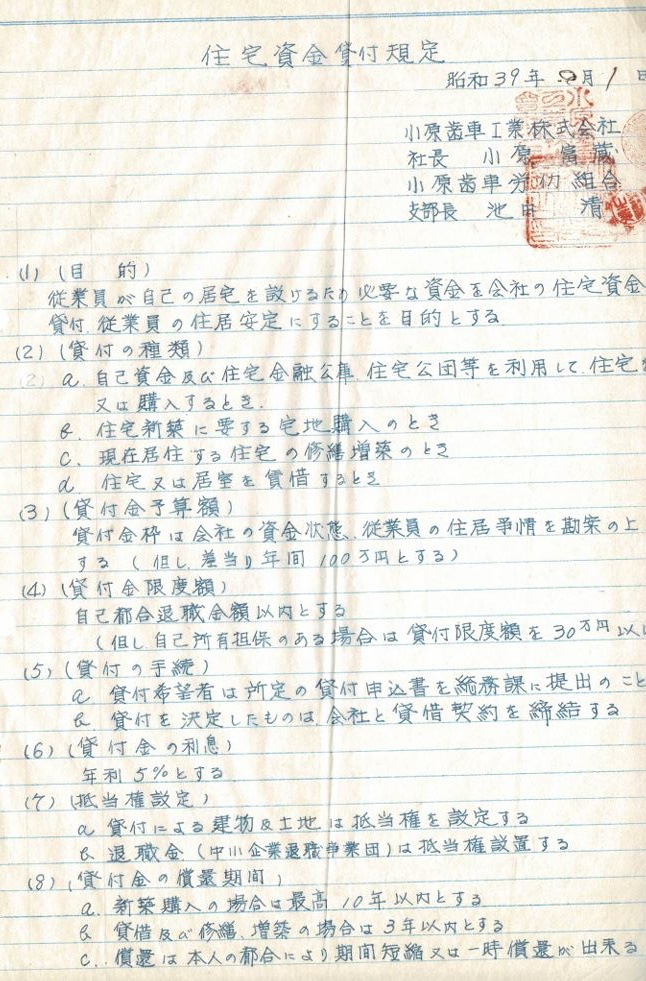 住宅資金貸付規定
昭和39年 月1日
小原歯車工業株式会社
社長 小原 富蔵
小原歯車労仂組合
支部長 池田 清
(1) (目 的)
従業員が自己の居宅を設けるため必要な資金を会社の住宅資金
貸付、従業員の住居安定にすることを目的とする
(2) (貸付の種類)
a. 自己資金及び住宅金融公庫、住宅公団等を利用して、住宅
又は購入するとき.
b. 住宅新築に要する宅地購入のとき
c. 現在居住する住宅の修繕増築のとき
d. 住宅又は居室を賃借するとき
(3) (貸付金予算額)
貸付金枠は会社の資金状態、従業員の住居事情を勘案の上
する (但し、差当り年間100万円とする)
(4) (貸付金限度額)
自己都合退職金額以内とする
(但し自己所有担保のある場合は貸付限度額を30万円以
(5) (貸付の手続)
a. 貸付希望者は所定の貸付申込書を総務課に提出のこと
b. 貸付を決定したものは、会社と貸借契約を締結する
(6) (貸付金の利息)
年利5%とする
(7) (抵当権設定)
a 貸付による建物及土地は抵当権を設定する
b 退職金(中小企業退職事業団)は抵当権設置する
(8) (貸付金の償還期間)
a. 新築購入の場合は最高10年以内とする
b 貸借及び修繕、増築の場合は3年以内とする
c. 償還は本人の都合により期間短縮又は一時償還が出来る